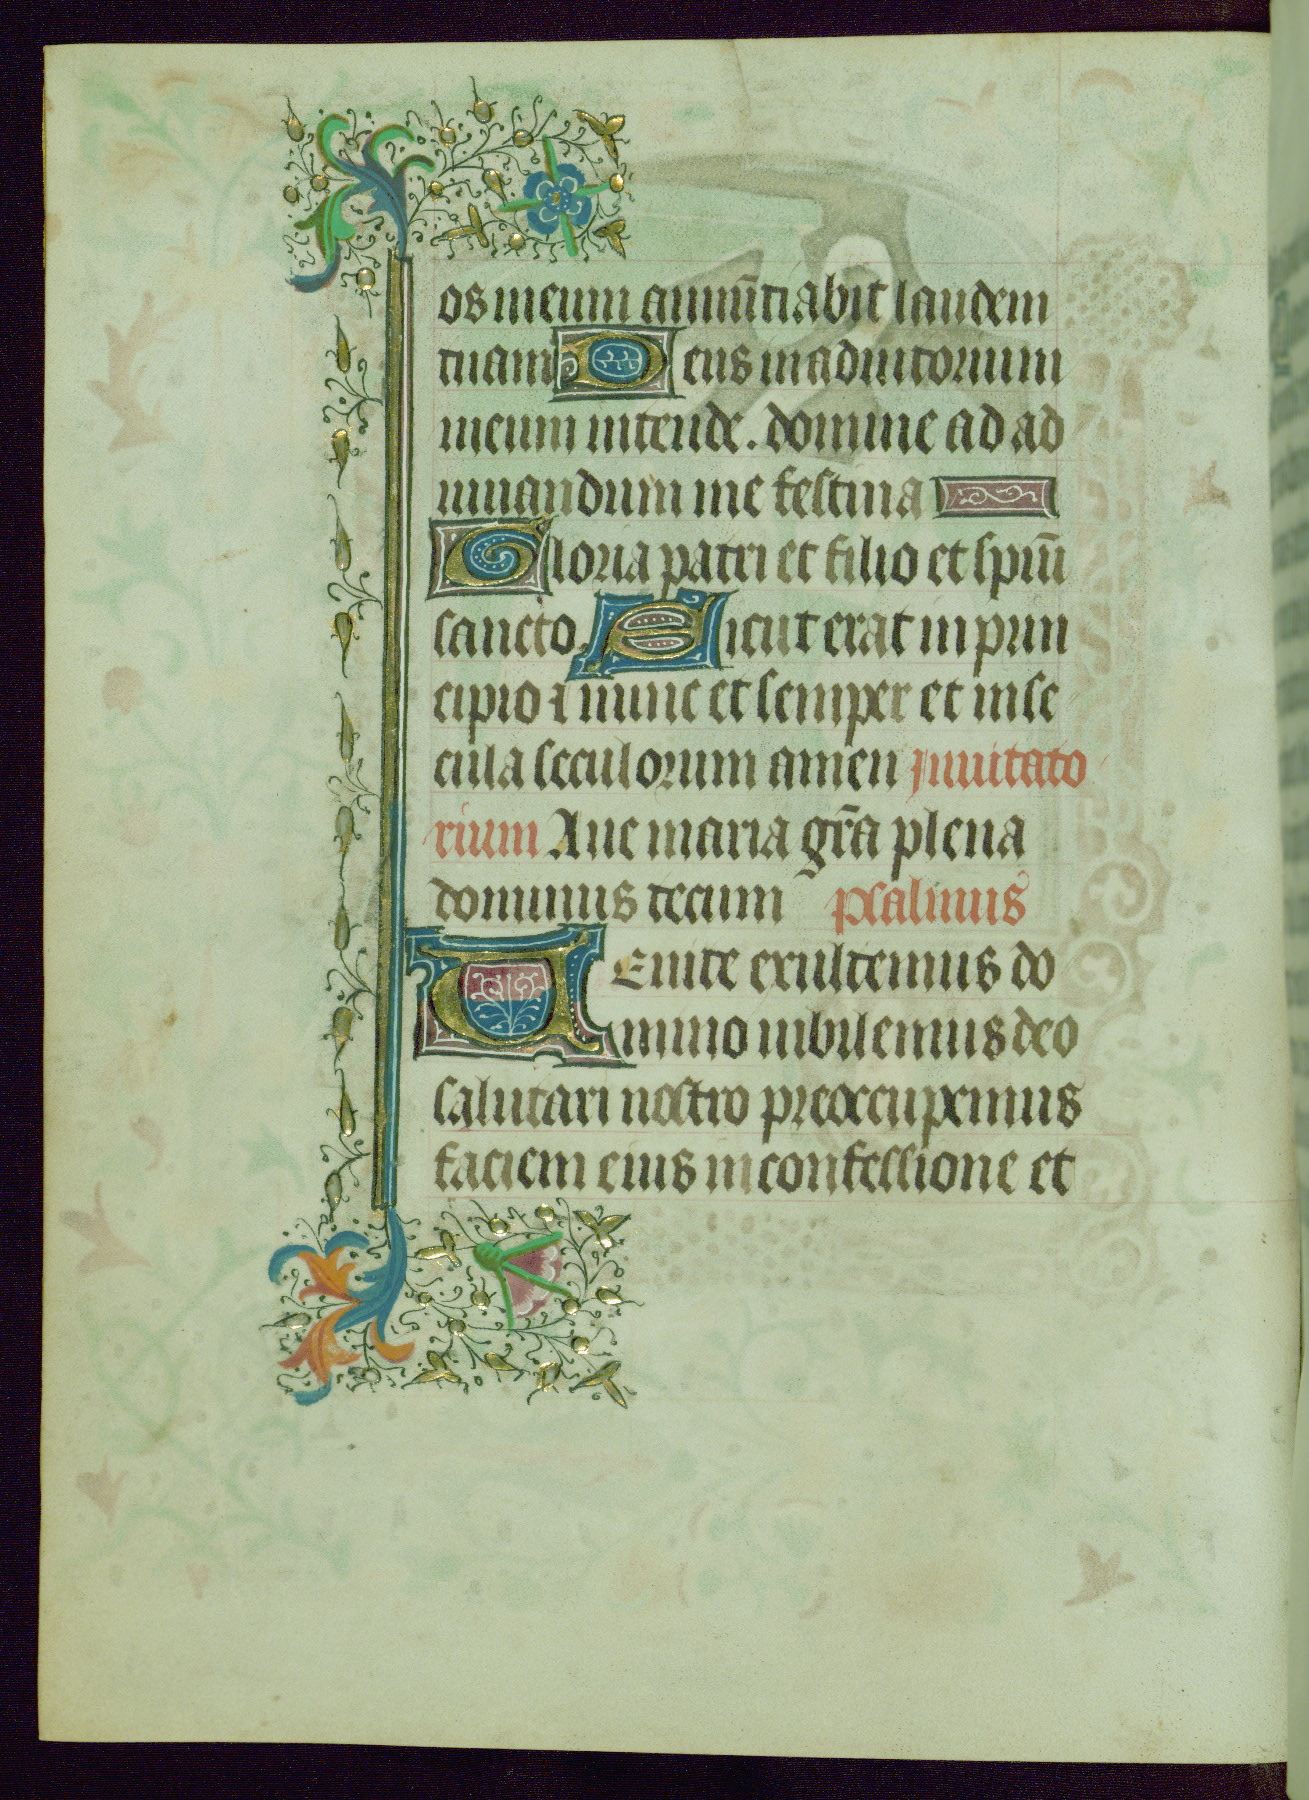 os meum annūtiabit laudem
tuam Deus in adiutorium
meum intende. domine ad ad
iuuandum me festina
Gloria patri et filio et spūi
sancto. Sicut erat in prin
cipio ⁊ nunc et semper et in se
cula seculorum amen Inuitato
rium Aue maria gr̄a plena
dominus tecum psalmus
Uenite exultemus do
mino iubilemus deo
salutari nostro preoccupemus
faciem eius in confessione et